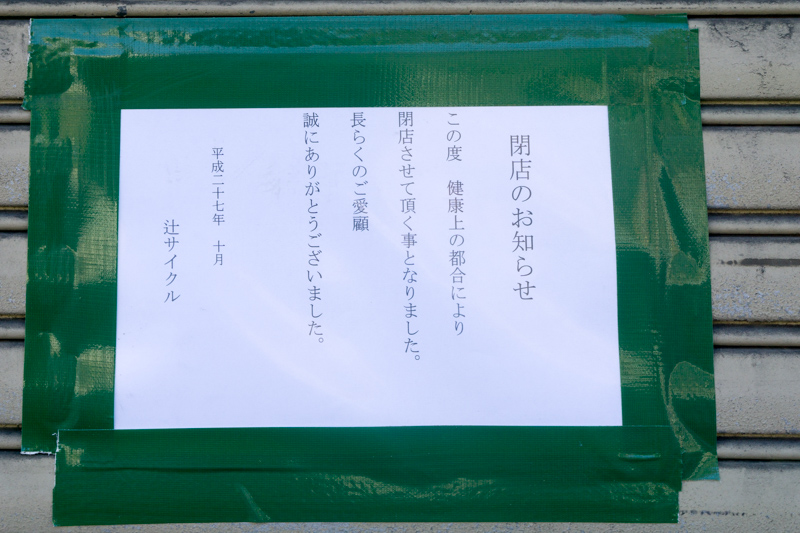 閉店のお知らせ
この度　健康上の都合により
閉店させて頂く事となりました。
長らくのご愛顧
誠にありがとうございました。
平成二十七年　十月
辻サイクル